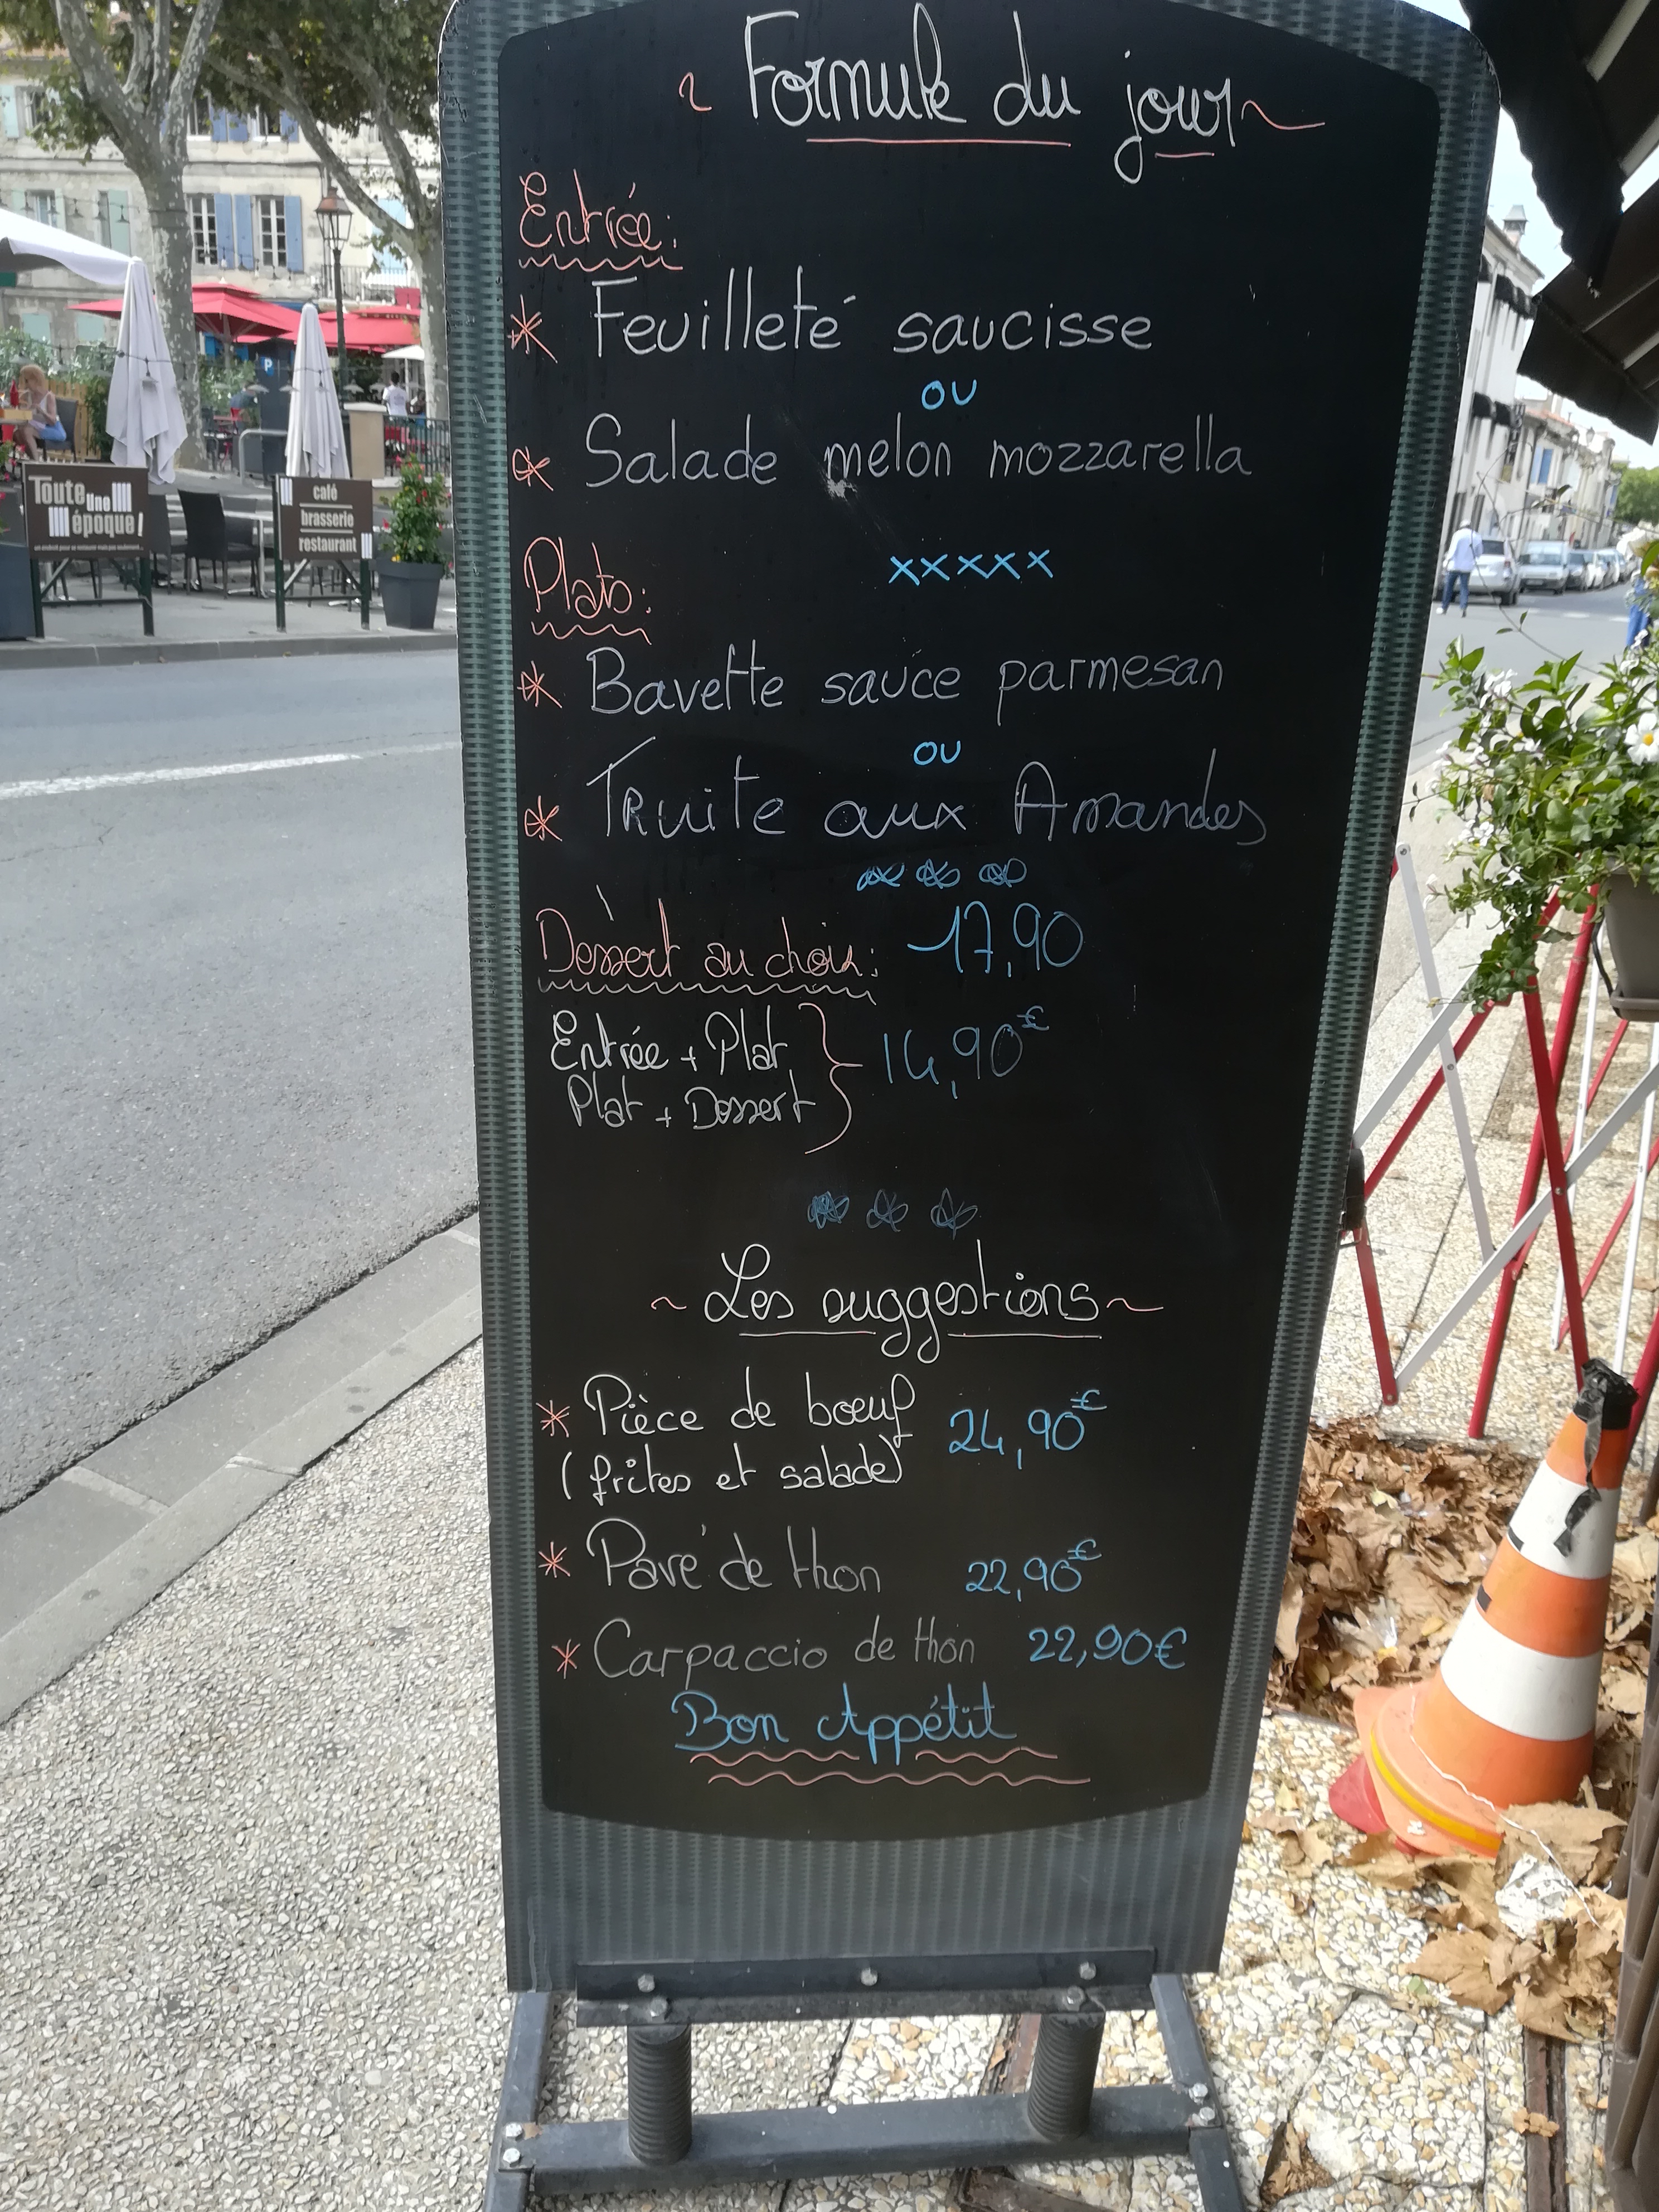 ~ Formule du jour ~
Entrée:
* Feuilleté saucisse
ou
* Salade melon mozzarella
xxxxx
Plats:
* Bavette sauce parmesan
ou
* Truite aux Amandes
Dessert au choix: 17,90
Entrée + Plat
Plat + Dessert } 14,90€
~ Les suggestions ~
* Pièce de bœuf 24,90€
(frites et salade)
* Pavé de thon 22,90€
* Carpaccio de thon 22,90€
Bon Appétit
Toute
une
époque!
café
brasserie
restaurant
P